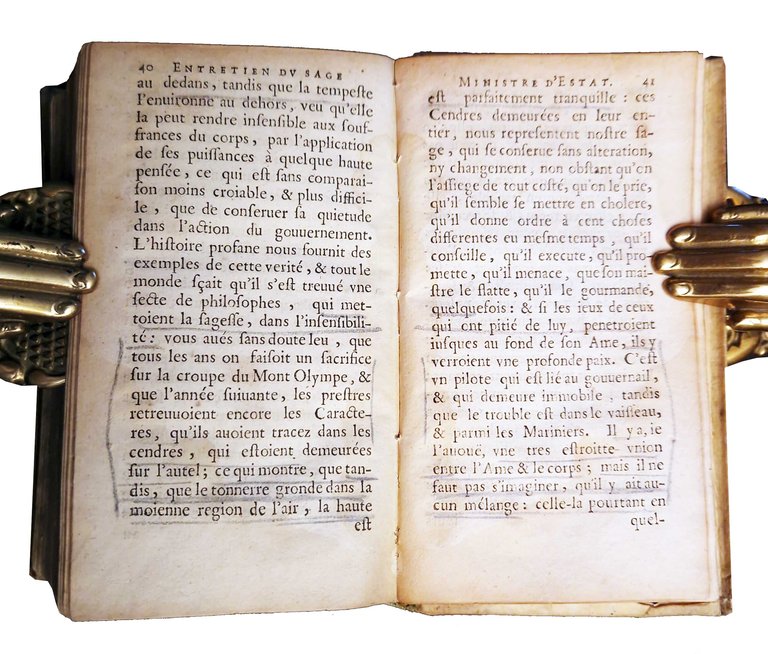 40 ENTRETIEN DV SAGE
au dedans, tandis que la tempeste
l'enuironne au dehors, veu qu'elle
la peut rendre inſenſible aux souf-
frances du corps, par l'application
de ſes puiſſances à quelque haute
penſée, ce qui eſt sans comparai-
ſon moins croiable, & plus diffici-
le, que de conſeruer ſa quietude
dans l'action du gouuernement.
L'hiſtoire profane nous fournit des
exemples de cette verité, & tout le
monde ſçait qu'il s'eſt treuué vne
ſecte de philoſophes, qui met-
toient la sageſſe, dans l'inſenſibili-
té: vous aués sans doute leu, que
tous les ans on faiſoit un ſacrifice
ſur la croupe du Mont Olympe, &
que l'année ſuiuante, les preſtres
retreuuoient encore les Caracte-
res, qu'ils auoient tracez dans les
cendres, qui eſtoient demeurées
ſur l'autel; ce qui montre, que tan-
dis, que le tonnerre gronde dans la
moienne region de l'air, la haute
eſt
MINISTRE D'ESTAT. 41
eſt parfaitement tranquille: ces
Cendres demeurées en leur en-
tier, nous repreſentent noſtre ſa-
ge, qui ſe conſerue ſans alteration,
ny changement, non obſtant qu'on
l'aſſiege de tout coſté, qu'on le prie,
qu'il ſemble ſe mettre en cholere,
qu'il donne ordre à cent choſes
differentes eu meſme temps, qu'il
conſeille, qu'il execute, qu'il pro-
mette, qu'il menace, que ſon mai-
ſtre le flatte, qu'il le gourmande,
quelquefois: & ſi les ieux de ceux
qui ont pitié de luy, penetroient
iuſques au fond de ſon Ame, ils y
verroient vne profonde paix. C'eſt
vn pilote qui eſt lié au gouuernail,
& qui demeure immobile, tandis
que le trouble eſt dans le vaiſſeau,
& parmi les Mariniers. Il y a, ie
l'auouë, vne tres eſtroitte vnion
entre l'Ame & le corps; mais il ne
faut pas s'imaginer, qu'il y ait au-
cun mélange: celle-la pourtant en
quel-